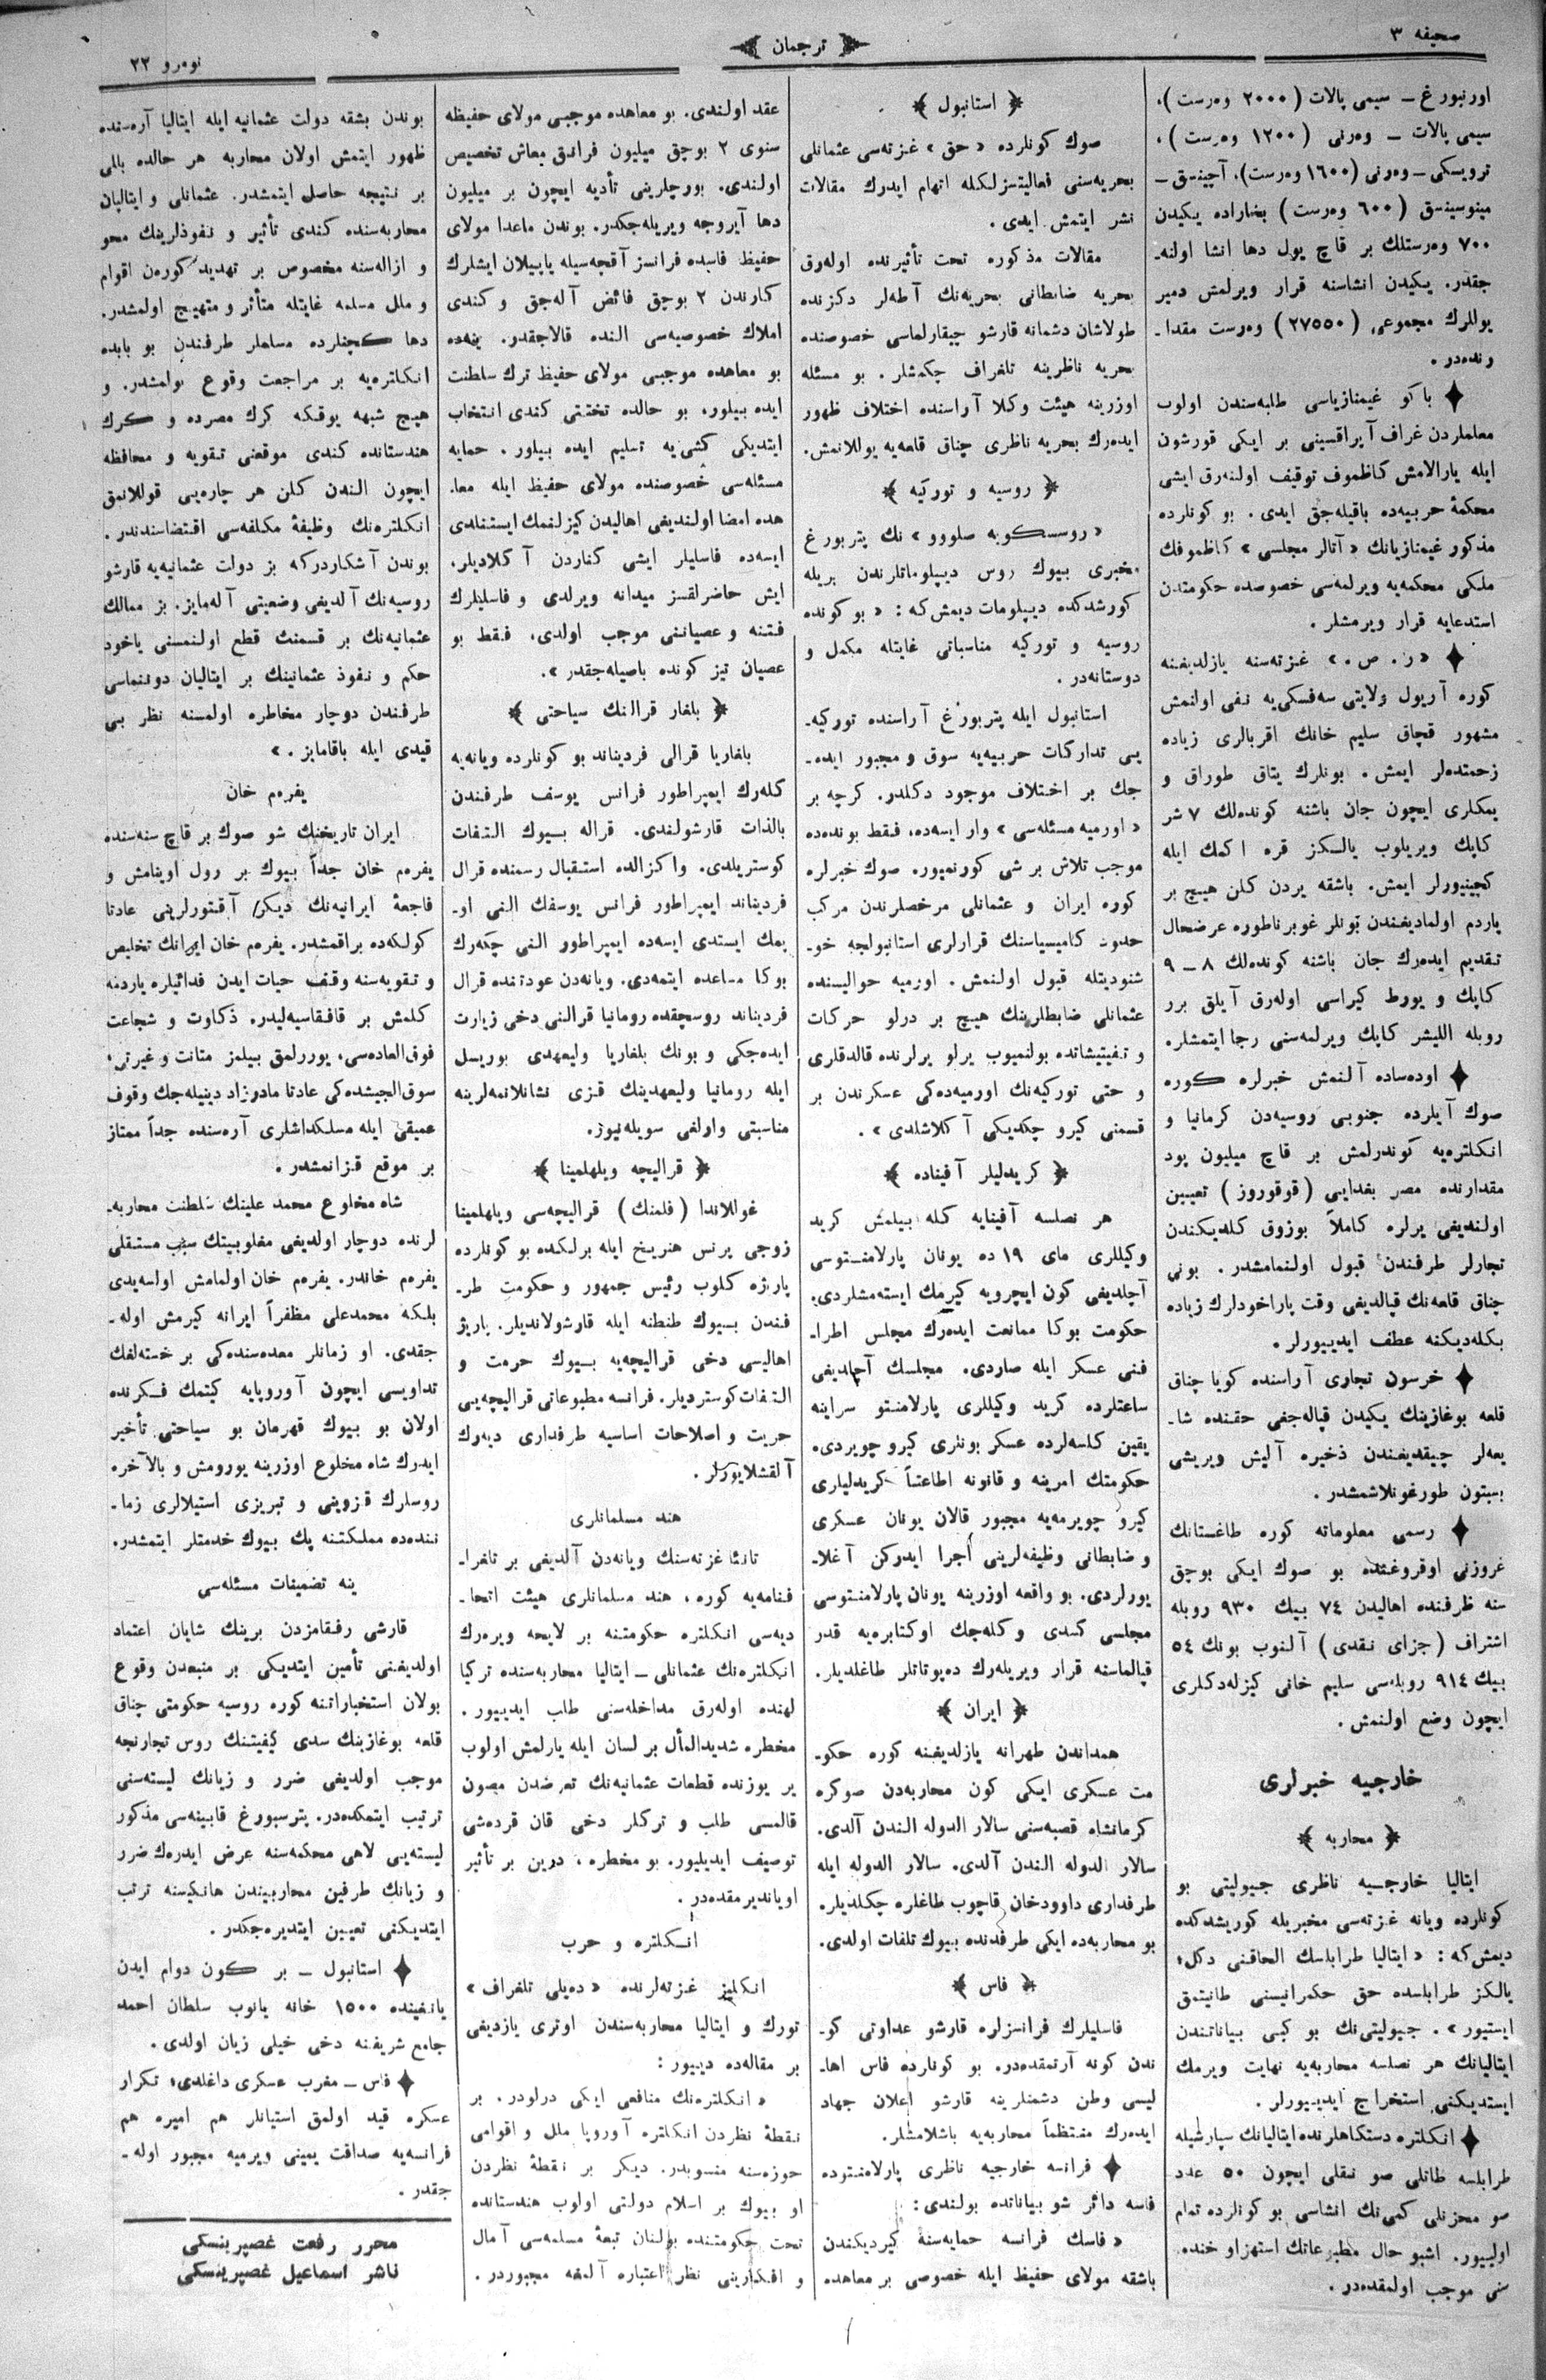 صحیفه ٣
ترجمان
نومرو ٢٢
اورنبورغ – سیمی پالات (٢٠٠٠ وەرست)،
سیمی پالات – وەرنی (١٢٠٠ وەرست)،
ترویسکی – وەرنی (١٦٠٠ وەرست)، آچینسق –
مینوسینسق (٦٠٠ وەرست) بخاراده یکیدن
٧٠٠ وەرستلك بر قاچ یول دها انشا اولنه‌ـ
جقدر. یکیدن انشاسنه قرار ویرلمش دمیر
یوللرك مجموعی (٢٧٥٥٠) وەرست مقدا‌ـ
رنده‌در.
باكو غیمنازیاسی طلبه‌سندن اولوب
معلملردن غراف آیراقسینی بر ایکی قورشون
ایله یارالامش كاظموف توقیف اولنه‌رق ایشی
محکمهٔ حربیه‌ده باقیله‌جق ایدی. بو کونلرده
مذکور غیمنازیانك «آتالر مجلسی» كاظموفك
ملکی محکمه‌یه ویرلمه‌سی خصوصده حکومتدن
استدعایه قرار ویرمشلر.
«ر. ص.» غزته‌سنه یازلدیغنه
کوره آریول ولایتی سەفسکی‌یه نفی اولنمش
مشهور قچاق سلیم خانك اقربالری زیاده
زحمتده‌لر ایمش. بونلرك یتاق طوراق و
یمکلری ایچون جان باشنه کونده‌لك ٧ شر
کاپك ویریلوب یالکز قره اکمك ایله
کچینیورلر ایمش. باشقه یردن کلن هیچ بر
یاردم اولمادیغندن بونلر غوبرناطوره عرضحال
تقدیم ایده‌رك جان باشنه کونده‌لك ٨ – ٩
کاپك و یورط کیراسی اوله‌رق آیلق برر
روبله اللیشر کاپك ویرلمه‌سنی رجا ایتمشلر.
اوده‌ساده آلنمش خبرلره کوره
صوك آیلرده جنوبی روسیه‌دن کرمانیا و
انکلتره‌یه کوندرلمش بر قاچ میلیون پود
مقدارنده مصر بغدایی (قوقوروز) تعیین
اولندیغی یرلره کاملاً بوزوق کلدیکندن
تجارلر طرفندن قبول اولنمامشدر. بونی
چناق قلعه‌نك قپالدیغی وقت پاراخودلرك زیاده
بکله‌دیکنه عطف ایدییورلر.
خرسون تجاری آراسنده کویا چناق
قلعه بوغازینك یکیدن قپاله‌جغی حقنده شا‌ـ
یعه‌لر چیقدیغندن ذخیره آلیش ویریشی
بستون طورغونلاشمشدر.
رسمی معلوماته کوره طاغستانك
غروزنی اوقروغنده بو صوك ایکی بوچق
سنه ظرفنده اهالیدن ٧٤ بیك ٩٣٠ روبله
اشتراف (جزای نقدی) آلنوب بونك ٥٤
بیك ٩١٤ روبله‌سی سلیم خانی کیزله‌دکلری
ایچون وضع اولنمش.
خارجیه خبرلری
محاربه
ایتالیا خارجیه ناظری جیولیتی بو
کونلرده ویانه غزته‌سی مخبریله کوریشدکده
دیمش‌که: «ایتالیا طرابلسك الحاقنی دکل؛
یالکز طرابلسده حق حکمرانیسنی طانیتمق
ایستیور». جیولیتی‌نك بو کبی بیاناتندن
ایتالیانك هر نصلسه محاربه‌یه نهایت ویرمك
ایستدیکنی استخراج ایدییورلر.
انکلتره دستکاهلرنده ایتالیانك سپارشیله
طرابلسه طاتلی صو نقلی ایچون ٥٠ عدد
صو محزنلی کمی‌نك انشاسی بو کونلرده تمام
اولییور. اشبو حال مطبوعاتك استهزاو خنده
سنی موجب اولمقده‌در.
استانبول
صوك کونلرده «حق» غزته‌سی عثمانلی
بحریه‌سنی فعالیتسزلکله اتهام ایدرك مقالات
نشر ایتمش ایدی.
مقالات مذکوره تحت تأثیرنده اوله‌رق
بحریه ضابطانی بحریه‌نك آطه‌لر دکزنده
طولاشان دشمانه قارشو چیقارلماسی خصوصنده
بحریه ناظرینه تلغراف چکمشلر. بو مسئله
اوزرینه هیئت وکلا آراسنده اختلاف ظهور
ایده‌رك بحریه ناظری چناق قلعه‌یه یوللانمش.
روسیه و تورکیه
«روسسکویه صلووو» نك پتربورغ
مخبری بیوك روس دیپلوماتلرندن بریله
کورشدکده دیپلومات دیمش‌که: «بو کونده
روسیه و تورکیه مناسباتی غایتله مکمل و
دوستانه‌در.
استانبول ایله پتربورغ آراسنده تورکیه‌ـ
یی تدارکات حربیه‌یه سوق و مجبور ایده‌ـ
جك بر اختلاف موجود دکلدر. کرچه بر
«اورمیه مسئله‌سی» وار ایسه‌ده، فقط بونده‌ده
موجب تلاش بر شی کورنمیور. صوك خبرلره
کوره ایران و عثمانلی مرخصلرندن مرکب
حدود کامیسیاسنك قرارلری استانبولجه خو‌ـ
شنودیتله قبول اولنمش. اورمیه حوالیسنده
عثمانلی ضابطلرینك هیچ بر درلو حرکات
و تفیتیشاتده بولنمیوب یرلو یرلرنده قالدقلری
و حتی تورکیه‌نك اورمیه‌ده‌کی عسکرندن بر
قسمنی کیرو چکدیکی آکلاشلدی».
کریدلیلر آفیناده
هر نصلسه آفینایه کله بیلمش کرید
وکیللری مای ١٩ ده یونان پارلامنتوسی
آچلدیغی کون ایچرویه کیرمك ایسته‌مشلردی.
حکومت بوکا ممانعت ایده‌رك مجلس اطرا‌ـ
فنی عسکر ایله صاردی. مجلسك آچلدیغی
ساعتلرده کرید وکیللری پارلامنتو سراینه
یقین کلسه‌لرده عسکر بونلری کیرو چویردی.
حکومتك امرینه و قانونه اطاعتاً کریدلیلری
کیرو چویرمه‌یه مجبور قالان یونان عسکری
و ضابطانی وظیفه‌لرینی اجرا ایدرکن آغلا‌ـ
یورلردی. بو واقعه اوزرینه یونان پارلامنتوسی
مجلسی کندی وکله‌جك اوکتابره‌یه قدر
قپالماسنه قرار ویریله‌رك دەپوتاتلر طاغلدیلر.
ایران
همداندن طهرانه یازلدیغنه کوره حکو‌ـ
مت عسکری ایکی کون محاربه‌دن صوکره
کرمانشاه قصبه‌سنی سالار الدوله الندن آلدی.
سالار الدوله الندن آلدی. سالار الدوله ایله
طرفداری داوودخان قاچوب طاغلره چکلدیلر.
بو محاربه‌ده ایکی طرفدنده بیوك تلفات اولدی.
فاس
فاسلیلرك فرانسزلره قارشو عداوتی کو‌ـ
ندن کونه آرتمقده‌در. بو کونلرده فاس اها‌ـ
لیسی وطن دشمنلرینه قارشو اعلان جهاد
ایده‌رك منتظماً محاربه‌یه باشلامشلر.
فرانسه خارجیه ناظری پارلامنتوده
فاسه دائر شو بیاناتده بولندی:
«فاسك فرانسه حمایه‌سنه کیردیکندن
باشقه مولای حفیظ ایله خصوصی بر معاهده
عقد اولندی. بو معاهده موجبی مولای حفیظه
سنوی ٢ بوچق میلیون فرانق معاش تخصیص
اولندی. بورچلرینی تأدیه ایچون بر میلیون
دها آیروجه ویریله‌جکدر. بوندن ماعدا مولای
حفیظ فاسده فرانسز آقچه‌سیله یاپیلان ایشلرك
کارندن ٢ بوچق فائض آله‌جق و کندی
املاك خصوصیه‌سی النده قالاجقدر. ینه‌ده
بو معاهده موجبی مولای حفیظ ترك سلطنت
ایده بیلور، بو حالده تختنی کندی انتخاب
ایتدیکی کشی‌یه تسلیم ایده بیلور. حمایه
مسئله‌سی خصوصنده مولای حفیظ ایله معا‌ـ
هده امضا اولندیغی اهالیدن کیزلنمك ایستنلدی
ایسه‌ده فاسلیلر ایشی کناردن آکلادیلر.
ایش حاضرلقسز میدانه ویرلدی و فاسلیلرك
فتنه و عصیاننی موجب اولدی، فقط بو
عصیان تیز کونده باصیله‌جقدر».
بلغار قرالنك سیاحتی
بلغاریا قرالی فردیناند بو کونلرده ویانه‌یه
کله‌رك ایمپراطور فرانس یوسف طرفندن
بالذات قارشولندی. قراله بیوك التفات
کوستریلدی. واکزالده استقبال رسمنده قرال
فردیناند ایمپراطور فرانس یوسفك النی او‌ـ
پمك ایستدی ایسه‌ده ایمپراطور النی چکه‌رك
بوکا مساعده ایتمه‌دی. ویانه‌دن عودتنده قرال
فردیناند روسچقده رومانیا قرالنی دخی زیارت
ایده‌جکی و بونك بلغاریا ولیعهدی بوریسك
ایله رومانیا ولیعهدینك قزی نشانلانمه‌لرینه
مناسبتی وارلغی سویله‌نیور.
قرالیچه ویلهلمینا
غوللاندا (فلمنك) قرالیچه‌سی ویلهلمینا
زوجی پرنس هنریخ ایله برلکده بو کونلرده
پاریژه کلوب رئیس جمهور و حکومت طر‌ـ
فندن بیوك طنطنه ایله قارشولاندیلر. پاریژ
اهالیسی دخی قرالیچه‌یه بیوك حرمت و
التفات کوستردیلر. فرانسه مطبوعاتی قرالیچه‌یی
حریت و اصلاحات اساسیه طرفداری دیه‌رك
آلقشلایورلر.
هند مسلمانلری
تانتا غزته‌سنك ویانه‌دن آلدیغی بر تلغرا‌ـ
فنامه‌یه کوره، هند مسلمانلری هیئت اتحا‌ـ
دیه‌سی انکلتره حکومتنه بر لایحه ویره‌رك
انکلتره‌نك عثمانلی – ایتالیا محاربه‌سنده ترکیا
لهنده اوله‌رق مداخله‌سنی طلب ایدییور.
مخطره شدیدالمأل بر لسان ایله یازلمش اولوب
یر یوزنده قطعات عثمانیه‌نك تعرضدن مصون
قالمسی طلب و ترکلر دخی قان قرده‌شی
توصیف ایدیلیور. بو مخطره، درین بر تأثیر
اویاندیرمقده‌در.
انکلتره و حرب
انکلیز غزته‌لرنده «ده‌یلی تلغراف»
تورك و ایتالیا محاربه‌سندن اوتری یازدیغی
بر مقاله‌ده دییور:
«انکلتره‌نك منافعی ایکی درلودر. بر
نقطهٔ نظردن انکلتره آوروپا ملل و اقوامی
حوزه‌سنه منسوبدر. دیکر بر نقطهٔ نظردن
او بیوك بر اسلام دولتی اولوب هندستانده
تحت حکومتنده بولنان تبعهٔ مسلمه‌سی آمال
و افکارینی نظر اعتباره آلمغه مجبوردر.
بوندن بشقه دولت عثمانیه ایله ایتالیا آره‌سنده
ظهور ایتمش اولان محاربه هر حالده بللی
بر نتیجه حاصل ایتمشدر. عثمانلی و ایتالیان
محاربه‌سنده کندی تأثیر و نفوذلرینك محو
و ازاله‌سنه مخصوص بر تهدید کورەن اقوام
و ملل مسلمه غایتله متأثر و متهیج اولمشدر.
دها کچنلرده مسلملر طرفندن بو بابده
انکلتره‌یه بر مراجعت وقوع بولمشدر. و
هیچ شبهه یوقکه کرك مصرده و کرك
هندستانده کندی موقعنی تقویه و محافظه
ایچون الندن کلن هر چاره‌یی قوللانمق
انکلتره‌نك وظیفهٔ مکلفه‌سی اقتضاسندندر.
بوندن آشکاردرکه بز دولت عثمانیه‌یه قارشو
روسیه‌نك آلدیغی وضعیتی آله‌مایز. بز ممالك
عثمانیه‌نك بر قسمنك قطع اولنمسنی یاخود
حکم و نفوذ عثمانینك بر ایتالیان دوننماسی
طرفندن دوچار مخاطره اولمسنه نظر بی
قیدی ایله باقامایز.»
یفرەم خان
ایران تاریخنك شو صوك بر قاچ سنه‌سنده
یفرەم خان جداً بیوك بر رول اوینامش و
فاجعهٔ ایرانیه‌نك دیکر آقتورلرینی عادتا
کولکه‌ده براقمشدر. یفرەم خان ایرانك تخلیص
و تقویه‌سنه وقف حیات ایدن فدائیلره یاردمنه
کلمش بر قافقاسیه‌لیدر. ذکاوت و شجاعت
فوق‌العاده‌سی، یوررلمق بیلمز متانت و غیرتی،
سوق‌الجیشده‌کی عادتا مادرزاد دینیله‌جك وقوف
عمیقی ایله مسلکداشلری آره‌سنده جداً ممتاز
بر موقع قزانمشدر.
شاه مخلوع محمد علینك سلطنت محاربه‌ـ
لرنده دوچار اولدیغی مغلوبیتك سبب مستقلی
یفرەم خاندر. یفرەم خان اولمامش اولسه‌یدی
بلکه محمدعلی مظفراً ایرانه کیرمش اوله‌ـ
جقدی. او زمانلر معده‌سنده‌کی بر خسته‌لغك
تداویسی ایچون آوروپایه کیتمك فکرنده
اولان بو بیوك قهرمان بو سیاحتی تأخیر
ایدرك شاه مخلوع اوزرینه یورومش و بالآخره
روسلرك قزوینی و تبریزی استیلالری زما‌ـ
ننده‌ده مملکتنه پك بیوك خدمتلر ایتمشدر.
ینه تضمینات مسئله‌سی
قارشی رفقامزدن برینك شایان اعتماد
اولدیغنی تأمین ایتدیکی بر منبعدن وقوع
بولان استخباراتنه کوره روسیه حکومتی چناق
قلعه بوغازینك سدی کیفیتنك روس تجارنجه
موجب اولدیغی ضرر و زیانك لیسته‌سنی
ترتیب ایتمکده‌در. پترسبورغ قابینه‌سی مذکور
لیسته‌یی لاهی محکمه‌سنه عرض ایده‌رك ضرر
و زیانك طرفین محاربیندن هانکیسنه ترتب
ایتدیکنی تعیین ایتدیره‌جکدر.
استانبول – بر کون دوام ایدن
یانغینده ١٥٠٠ خانه یانوب سلطان احمد
جامع شریفنه دخی خیلی زیان اولدی.
فاس – مغرب عسکری داغلدی؛ تکرار
عسکره قید اولمق استیانلر هم امیره هم
فرانسه‌یه صداقت یمینی ویرمیه مجبور اوله‌ـ
جقدر.
محرر رفعت غصپرینسکی
ناشر اسماعیل غصپرینسکی